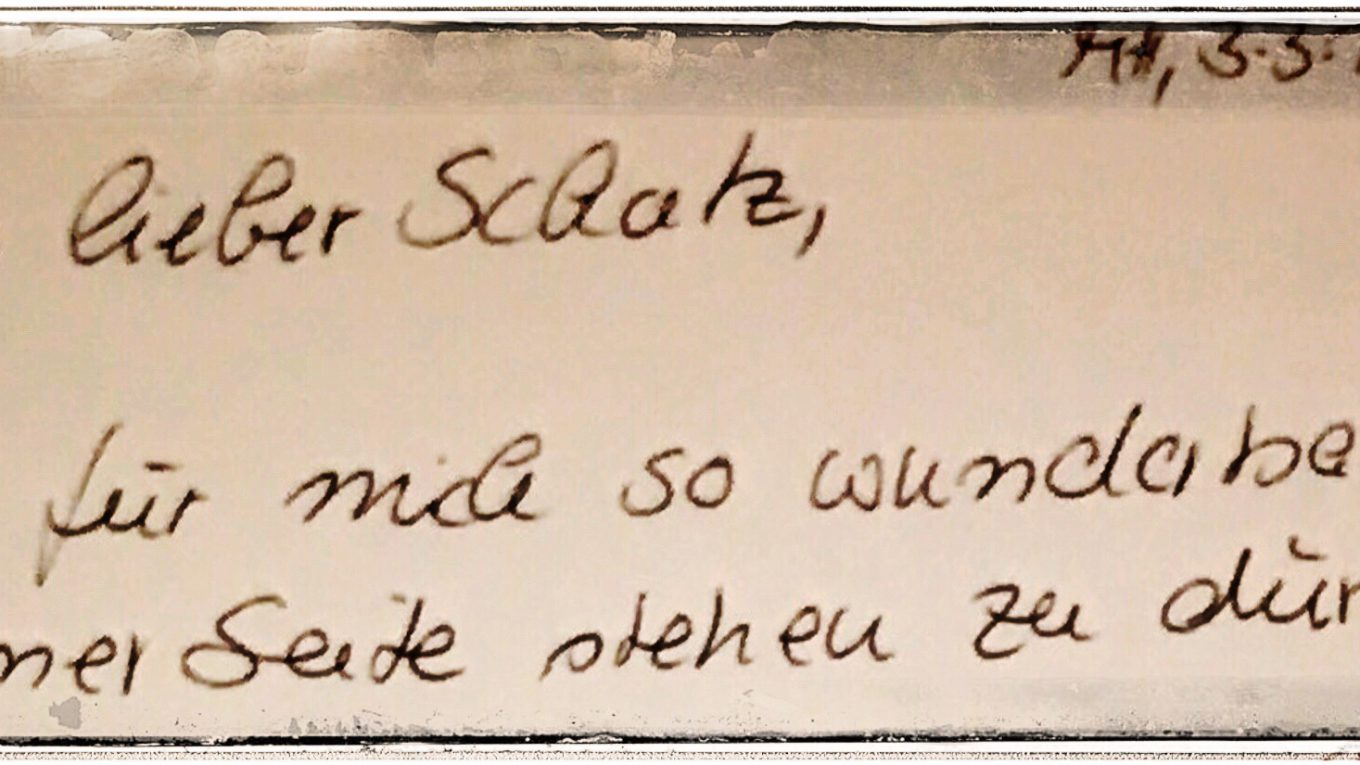 3.3.
lieber Schatz,
für mich so wundabe
ner Seite stehen zu dür